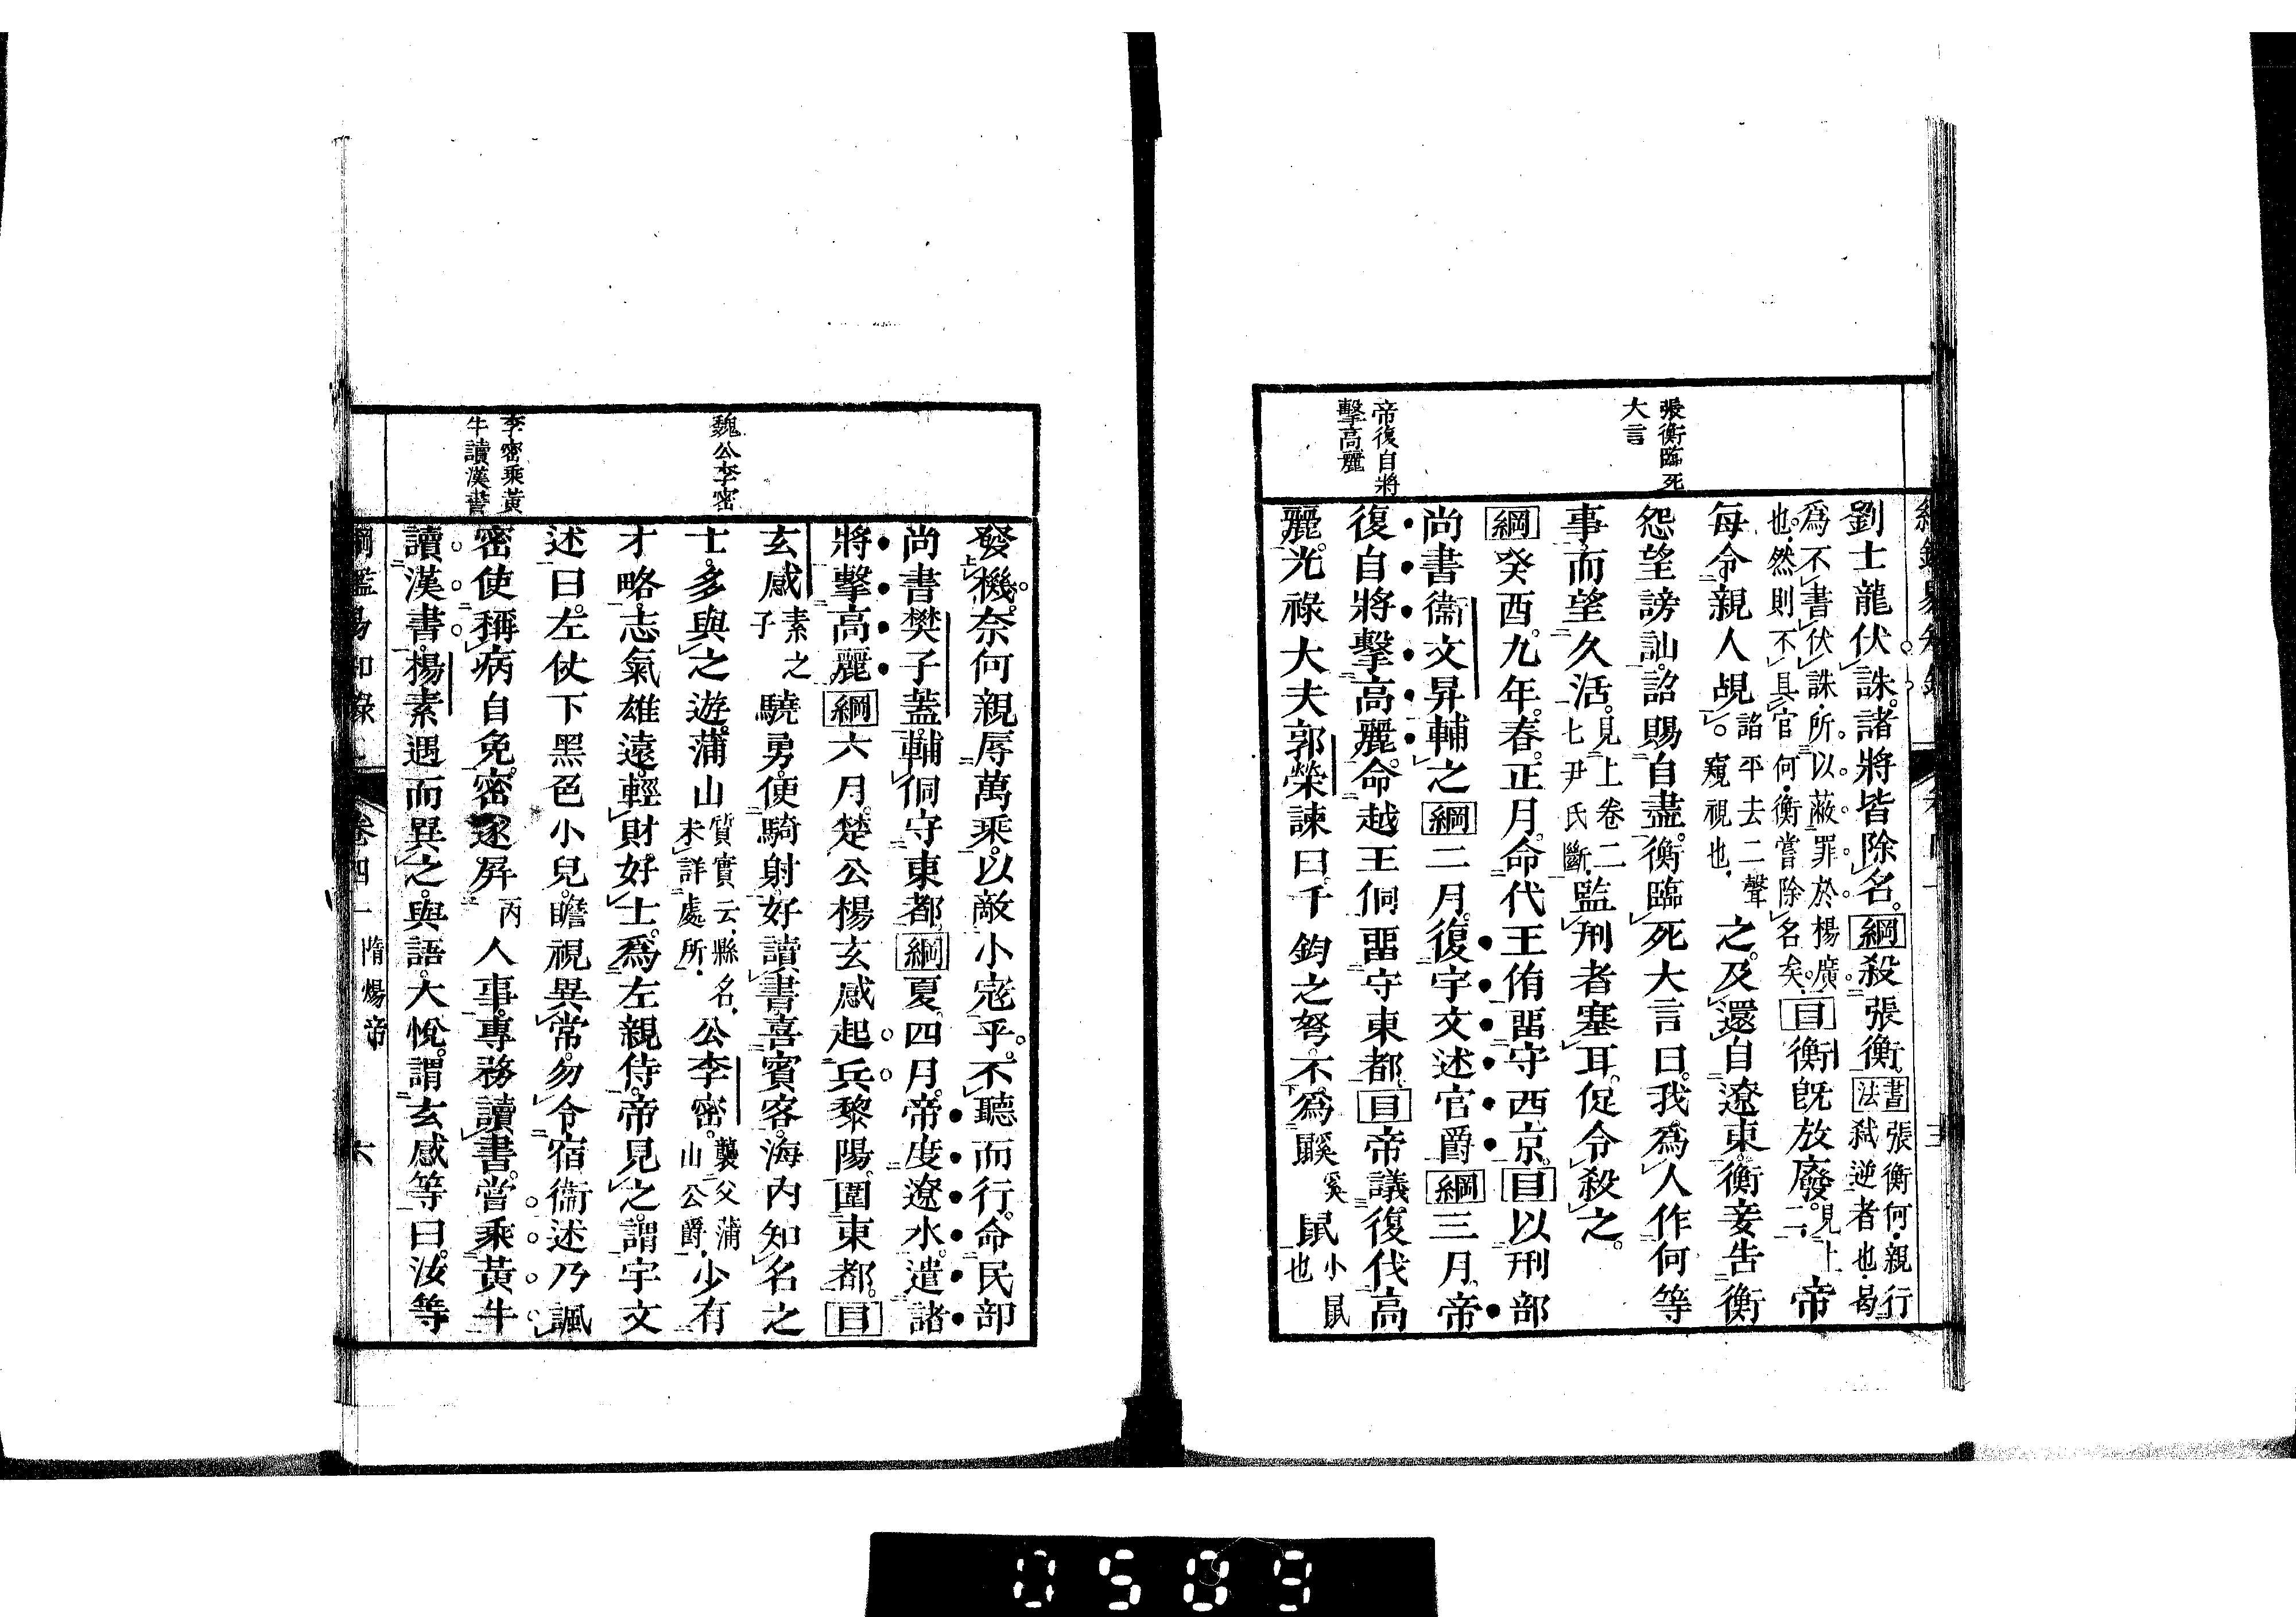 張衡臨死
大言
帝復自將
擊高麗
劉士龍伏誅。諸將皆除名。綱殺張衡。書法張衡何。親行弑逆者也。曷
爲不書伏誅。所以蔽罪於楊廣也。然則不具官何。衡嘗除名矣。目衡既放廢。見上二。帝
每令親人覘詀平去二聲。窺視也。之。及還自遼東。衡妾告衡
怨望謗訕。詔賜自盡。衡臨死大言曰。我爲人作何等
事。而望久活。見上卷二七尹氏斷。監刑者塞耳。促令殺之。
綱癸酉。九年。春。正月。命代王侑畱守西京。目以刑部
尚書衞文昇輔之。綱二月。復宇文述官爵。綱三月。帝
復自將擊高麗。命越王侗畱守東都。目帝議復伐高
麗。光祿大夫郭榮諫曰。千鈞之弩。不爲鼷奚鼠小鼠也
魏公李密
李密乘黃
牛讀漢書
發機。奈何親辱萬乘。以敵小寇乎。不聽而行。命民部
尚書樊子蓋。輔侗守東都。綱夏。四月。帝度遼水。遣諸
將擊高麗。綱六月。楚公楊玄感起兵黎陽。圍東都。目
玄感素之子驍勇。便騎射。好讀書。喜賓客。海内知名之
士。多與之遊。蒲山質實云。縣名。未詳處所。公李密。襲父蒲山公爵。少有
才略。志氣雄遠。輕財好士。爲左親侍。帝見之。謂宇文
述曰。左仗下黑色小兒。瞻視異常。勿令宿衞。述乃諷
密。使稱病自免。密遂屏丙人事。專務讀書。嘗乘黃牛
讀漢書。楊素遇而異之。與語。大悅。謂玄感等曰。汝等
綱鑑易知錄 卷四一 隋煬帝 六
0509